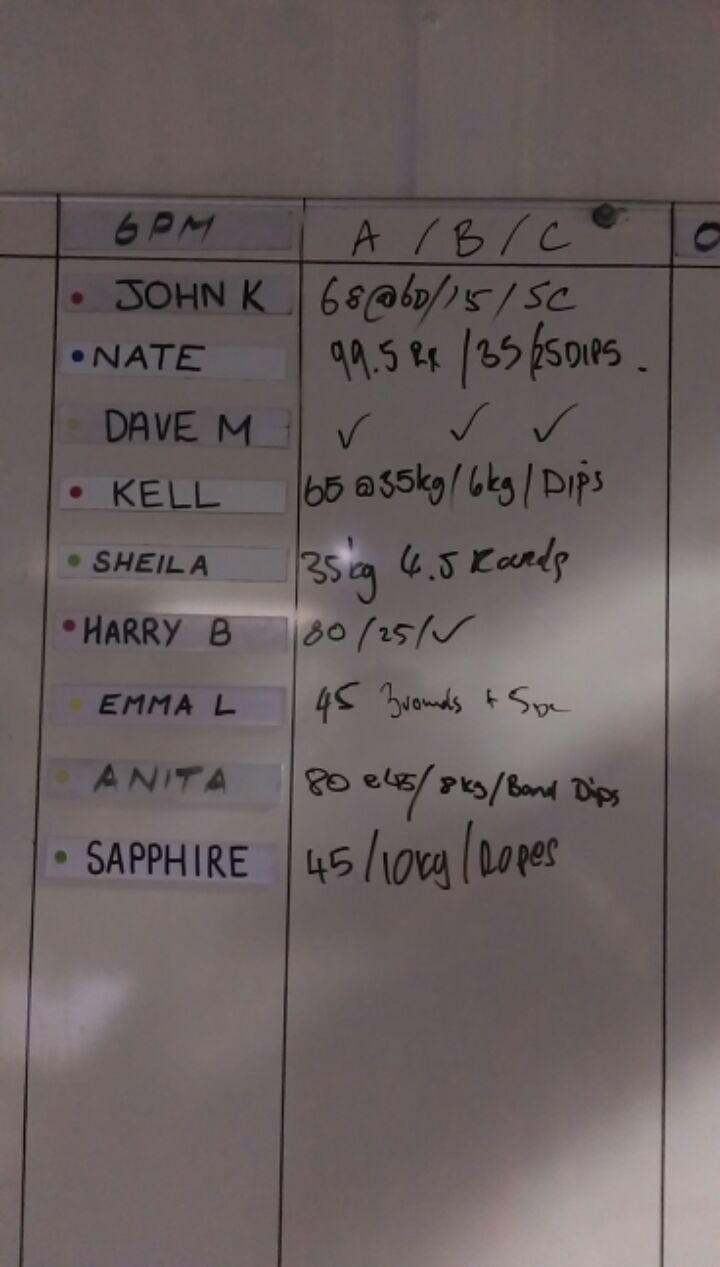 6PM A / B / C
JOHN K 68@60/15/SC
NATE 99.5 Rx /35/25DIPS.
DAVE M ✓ ✓ ✓
KELL 65@35kg/6kg/Dips
SHEILA 35kg 4.5 Rounds
HARRY B 80/25/✓
EMMA L 45 3rounds + 5
ANITA 80 @45/8kg/Band Dips
SAPPHIRE 45/10kg/Ropes